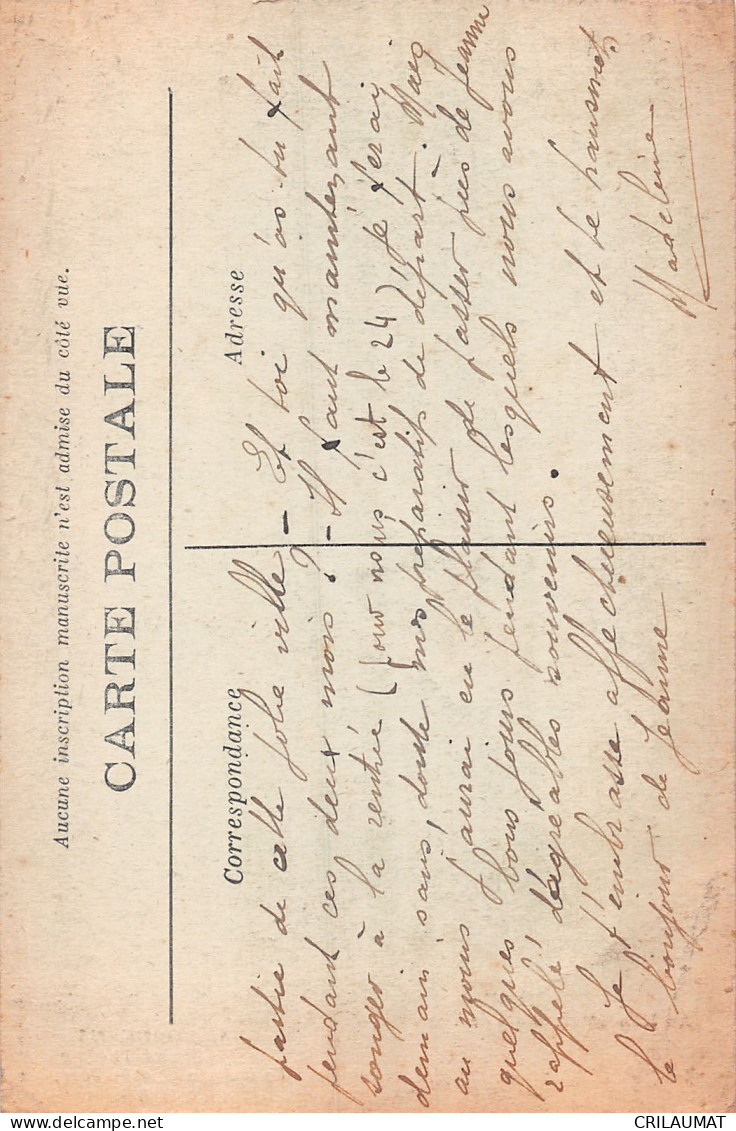 Aucune inscription manuscrite n'est admise du côté vue.
CARTE POSTALE
Correspondance
Adresse
partie de cette jolie ville – Et toi qu'as tu fait
pendant ces deux mois ? – Il faut maintenant
songer à la rentrée (pour nous c'est le 24) je ferai
demain sans doute mes préparatifs de départ. Mais
au moins j'aurai eu le plaisir de passer près de Jeanne
quelques bons jours pendant lesquels nous avons
rappelé d'agréables souvenirs.
Je t'embrasse affectueusement et te transmets
le bonjour de Jeanne
Madeleine
CRILAUMAT